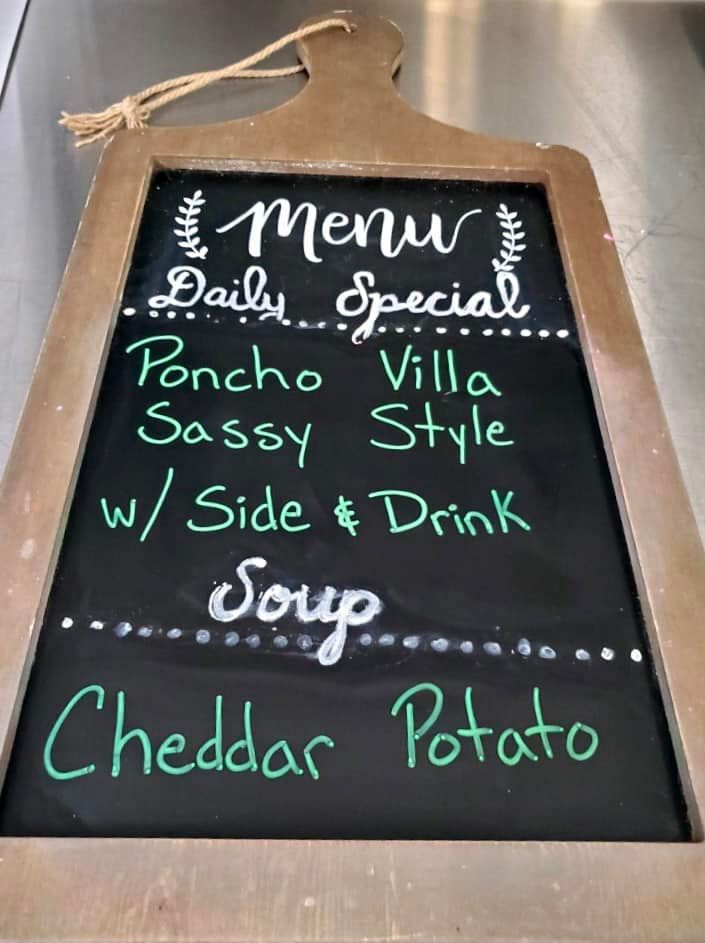 Menu
Daily Special
Poncho Villa
Sassy Style
w/ Side & Drink
Soup
Cheddar Potato